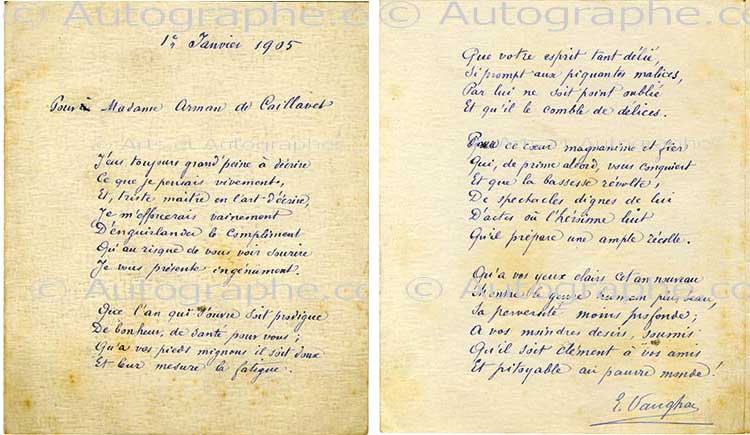 © Autographe.co
1er Janvier 1905
Pour Madame Arman de Caillavet
Arts et Autographes
J'eus toujours grand'peine à décrire
Ce que je pensais vivement,
Et, triste maître en l'art d'écrire,
Je m'efforcerais vainement
D'enguirlander le compliment
Qu'au risque de vous voir sourire
Je vous présente ingénument.
© Autographe.co
Que l'an qui s'ouvre soit prodigue
De bonheur, de santé pour vous;
Qu'à vos pieds mignons il soit doux
Et leur mesure la fatigue.
© Autographe.co
Que votre esprit tant délié,
Si prompt aux piquantes malices,
Par lui ne soit point oublié
Et qu'il le comble de délices.
Arts et Autographes
ce cœur magnanime et fier
Qui, de prime abord, vous conquiert
Et que la bassesse révolte,
De spectacles dignes de lui
D'actes où l'héroïsme luit
Qu'il prépare une ample récolte.
© Autographe.co
Qu'à vos yeux clairs cet an nouveau
Montre le genre humain plus beau,
Sa perversité moins profonde;
A vos moindres désirs, soumis
Qu'il soit clément à vos amis
Et pitoyable au pauvre monde!
E. Vaughan